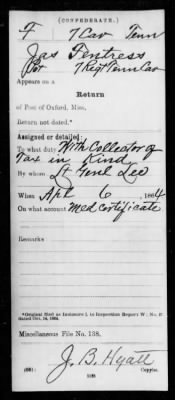 (CONFEDERATE.)
F 7 Cav Tenn
Jas Fentress
Pvt 7 Regt Tenn Cav
Appears on a
Return
of Post of Oxford, Miss,
Return not dated.*
Assigned or detailed:
To what duty With Collector of
Tax in Kind
By whom Lt Genl Lee
When Apl 6, 1864
On what account Med certificate
Remarks:
*Original filed as Inclosure 1, to Inspection Report W; No. 27
dated Oct. 14, 1864.
Miscellaneous File No. 138.
J. B. Hyatt
Copyist.